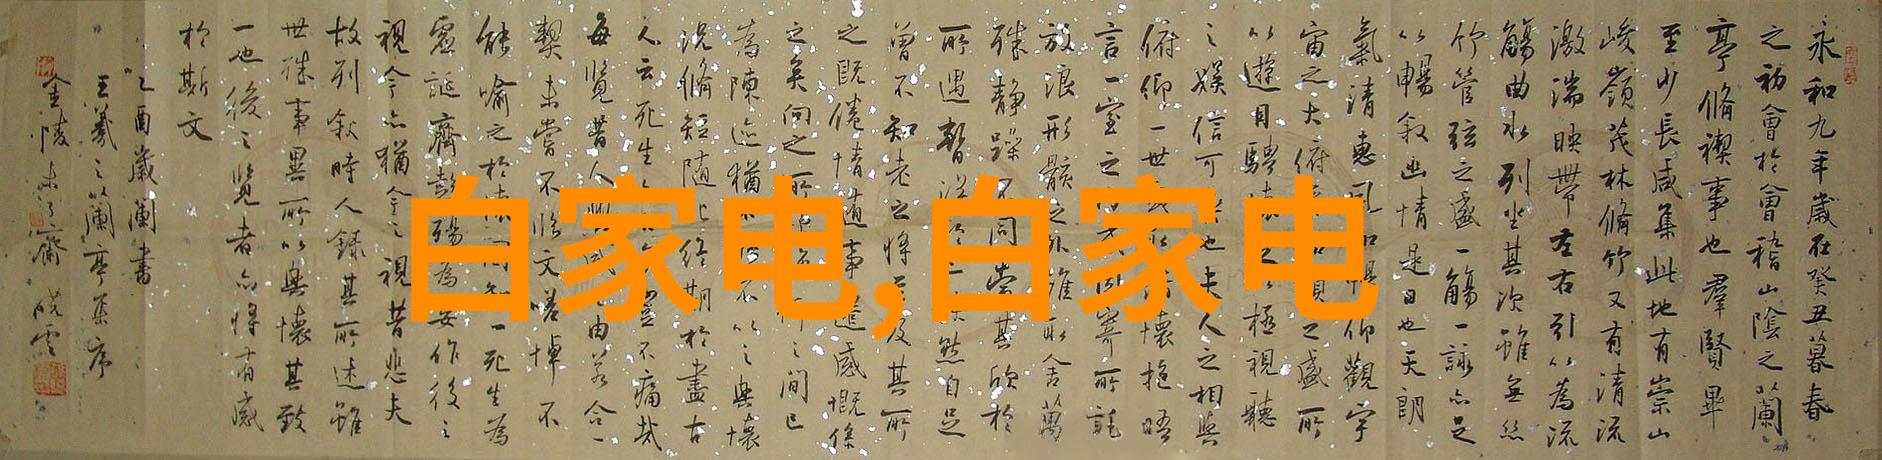 永和九年歲在癸丑暮春
之初會於會稽山陰之蘭
亭脩禊事也羣賢畢
至少長咸集此地有崇山
峻嶺茂林脩竹又有清流
激湍映帶左右引以為流
觴曲水列坐其次雖無絲
竹管弦之盛一觴一詠亦足
以暢敘幽情是日也天朗
氣清惠風和暢仰觀宇
宙之大俯之盛所
以遊目騁懷足以極視聽
之娛信可樂也夫人之相與
俯仰一世懷抱晤
言一室之寄所託
放浪形骸之外雖取舍萬
殊靜躁不同當其欣於
所遇暫然自足
曾不知老之將至及其所
之既倦情隨事遷感慨係
之矣向之所之間已
為陳迹猶不以之興懷
況脩短隨化終期於盡古
人云死生豈不痛哉
每覽昔人之由若合一
契未嘗不臨文嗟悼不
能喻之於懷固知一死生為
虛誕齊彭殤為妄作後之
視今亦猶今之視昔悲夫
故列敘時人錄其所述雖
世殊事異所以興懷其致
一也後之覽者亦將有感
於斯文
乙酉歲蘭書
王羲之蘭亭集序
金陵
白家电,白家电